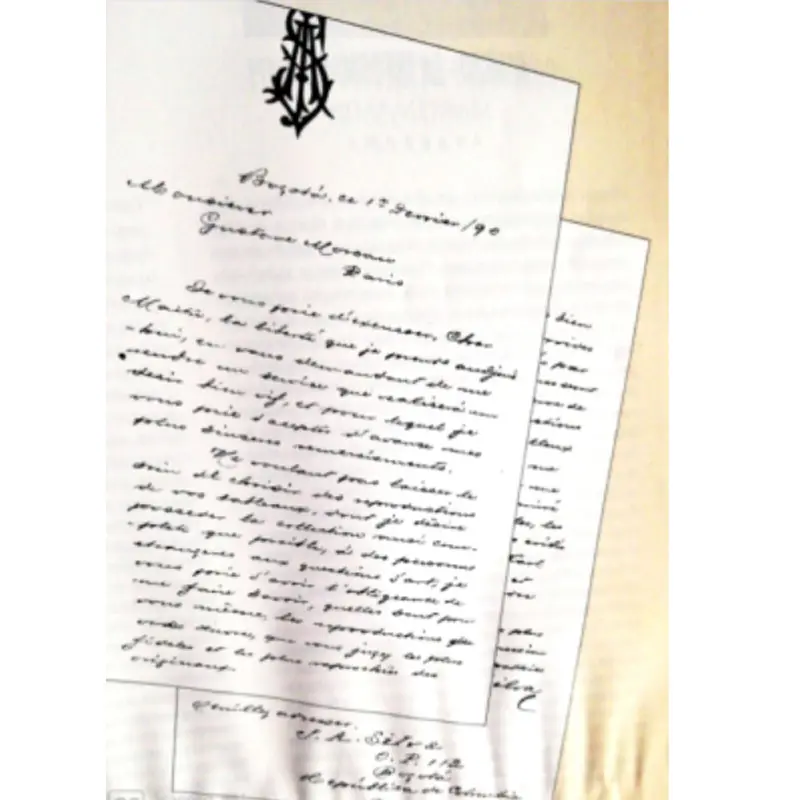 Bogotá, ce 1º Janvier/90
Monsieur
Gustave Moreau
Paris
Je vous prie d'excuser, Cher
Maître, la liberté que je prends aujour
-hui, en vous demandant de me
rendre un service que realisera un
desir bien vif, et pour lequel je
vous prie d'accepter d'avance mes
plus sinceres remerciements.
Ne voulant pas laisser le
soin de choisir des reproductions
de vos tableaux, dont je désire
posseder la collection aussi com-
-plete que posible, à des personnes
etrangeres aux questions d'art, je
vous prie d'avoir l'obligeance de
me faire savoir, quelles sont pour
vous même, les reproductions de
votre œuvre, que vous jugez les plus
fideles et les plus des
originaux.
bien
par
sont
de
me
les
Tart
et
plus
Silva
Veuillez adresser.
J. A. Silva
O. P. 112
Bogotá
República de Colombia